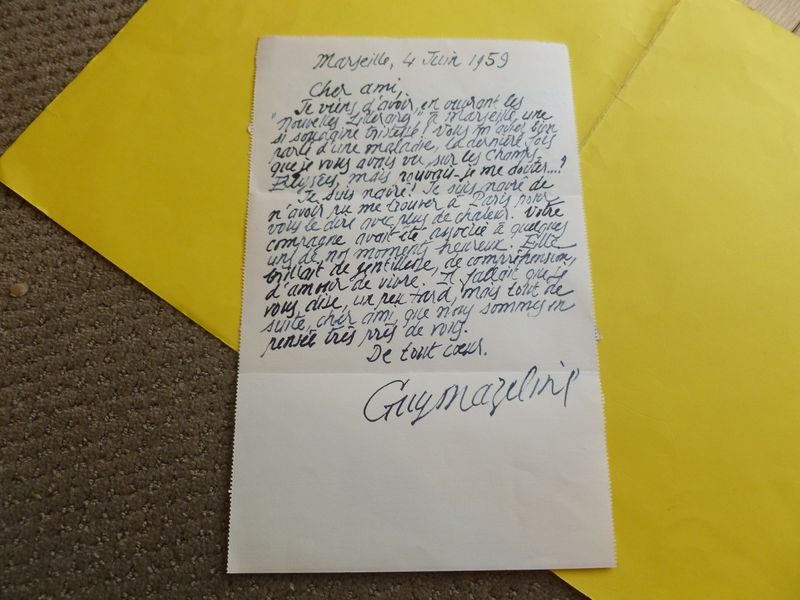 Marseille, 4 Juin 1959
Cher ami,
Je viens d'avoir, en ouvrant les
"Nouvelles Littéraires" à Marseille, une
si soudaine tristesse! Vous m'aviez bien
parlé d'une maladie, la dernière fois
que je vous avais vu sur les Champs
Elysées, mais pouvais-je me douter...?
Je suis navré! Je suis navré de
n'avoir pu me trouver à Paris pour
vous le dire avec plus de chaleur. Votre
compagne avait été associée à quelques
uns de nos moments heureux. Elle
brillait de gentillesse, de compréhension,
d'amour de vivre. Il fallait que je
vous dise, un peu tard, mais tout de
suite, cher ami, que nous sommes en
pensée très près de vous.
De tout coeur.
Guy Mazeline